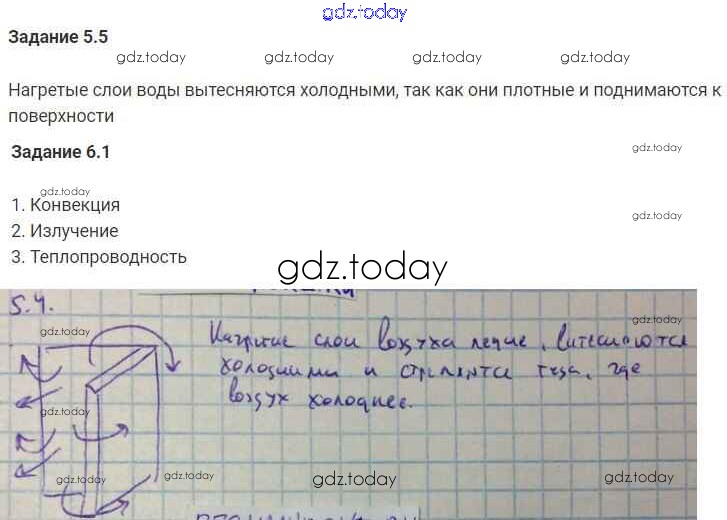 gdz.today
Задание 5.5
gdz.today gdz.today gdz.today gdz.today
Нагретые слои воды вытесняются холодными, так как они плотные и поднимаются к
поверхности
Задание 6.1
gdz.today
gdz.today
1. Конвекция
gdz.today
2. Излучение
3. Теплопроводность
gdz.today
5.4.
gdz.today
gdz.today
Нагретые слои воздуха легче, витесняются
холодными и стремятся туда, где
gdz.today
воздух холоднее.
gdz.today
gdz.today
gdz.today
gdz.today
gdz.today